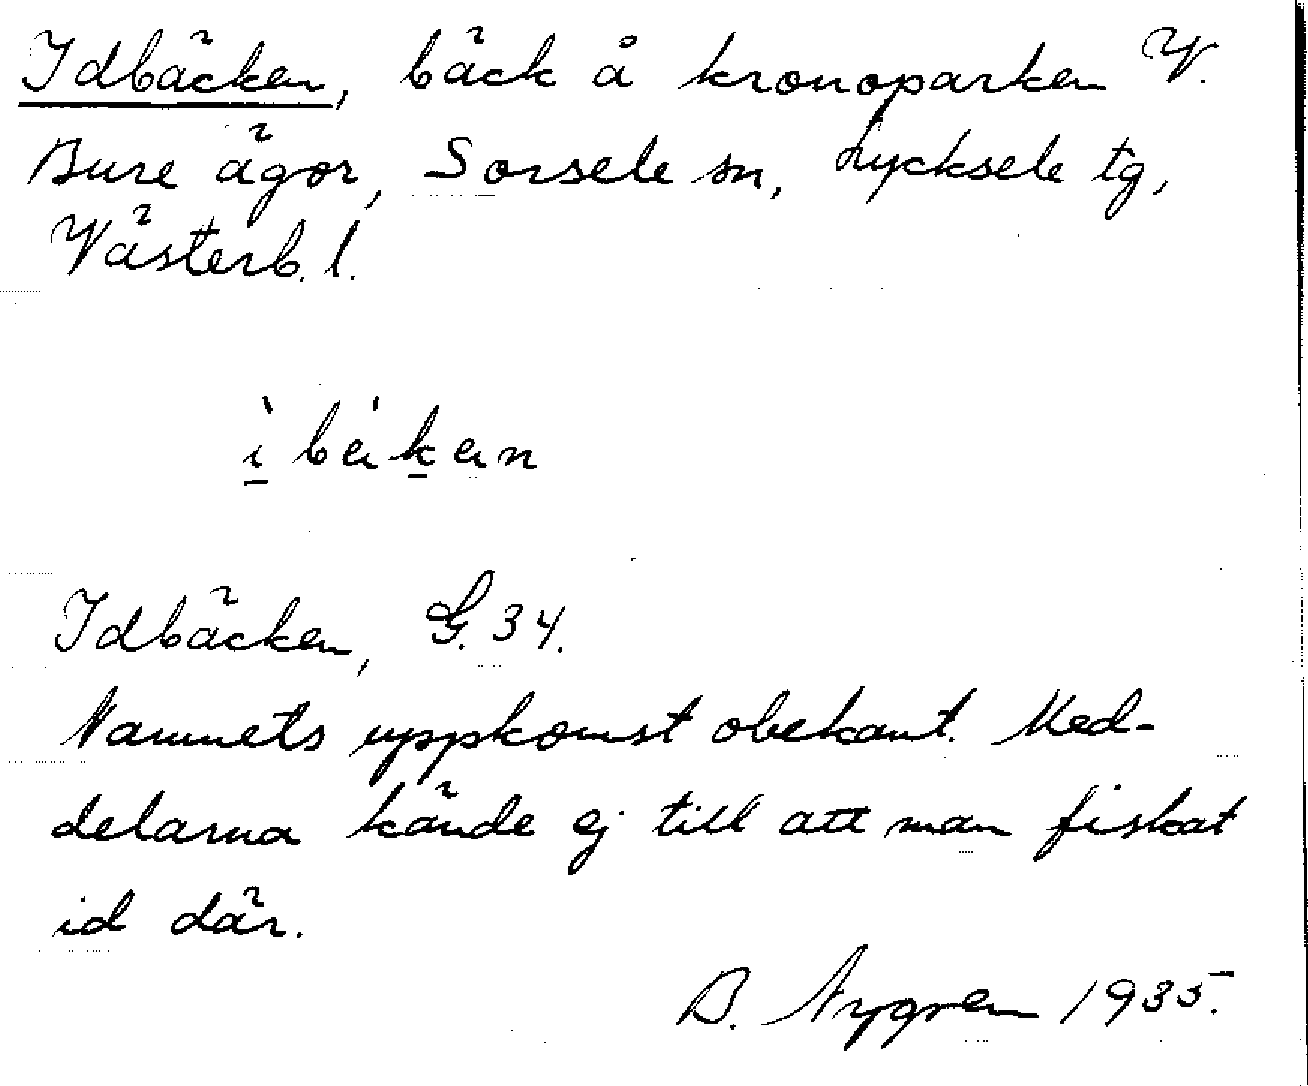 Idbäcken, bäck å kronoparken V.
Bure ägor, Sorsele sn, Lycksele tg,
Västerb. l.
ì béken
Idbäcken, G. 34.
Namnets uppkomst obekant. Med-
delarna kände ej till att man fiskat
id där.
B. Nygren 1935.